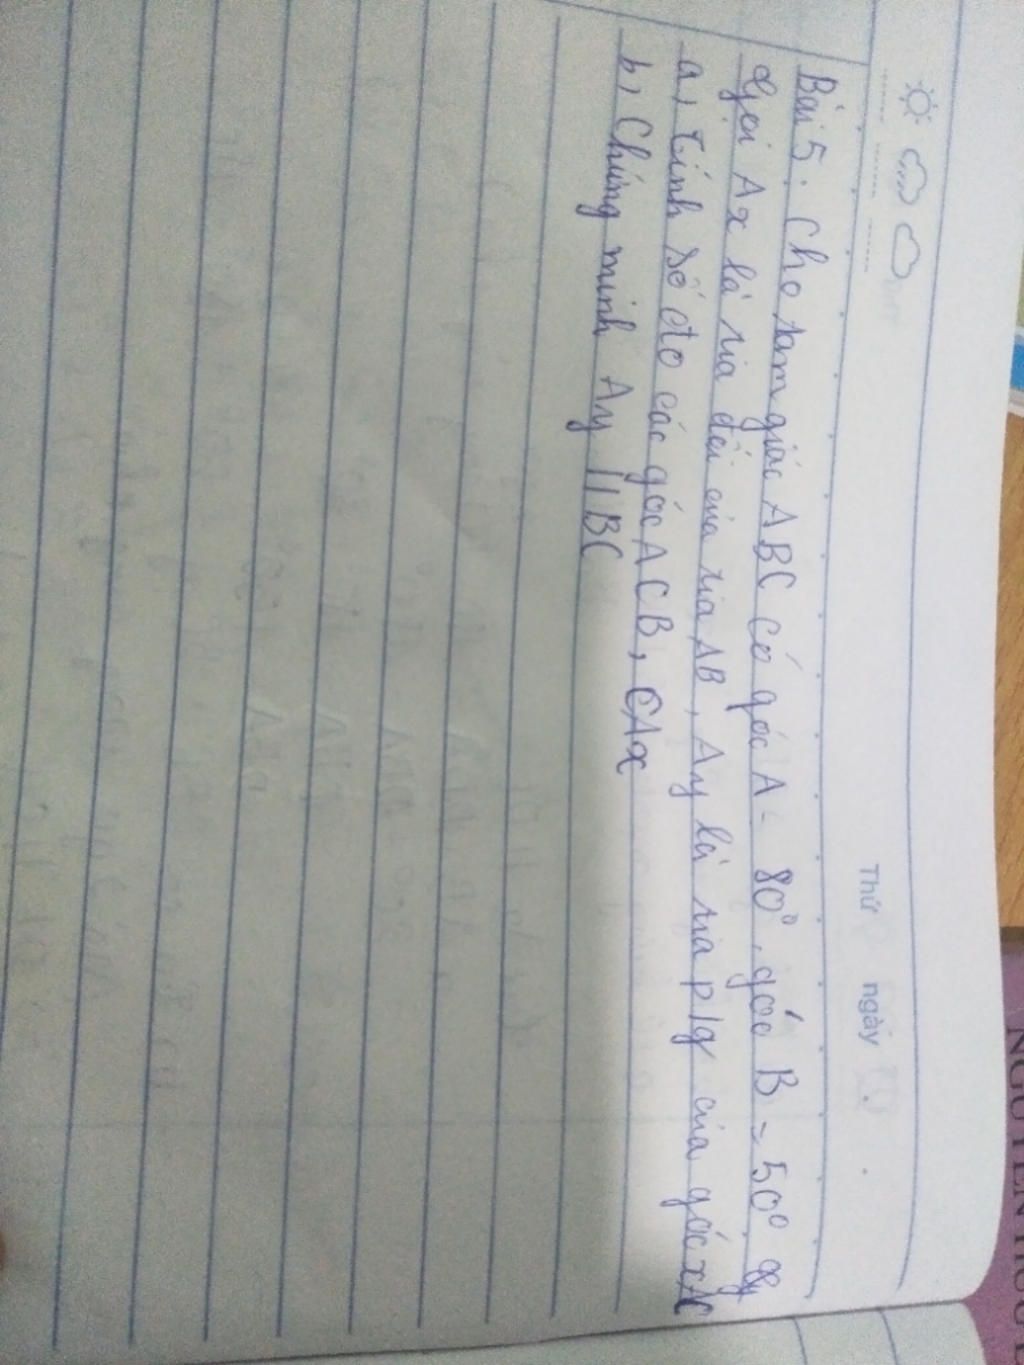 Thứ ngày
Bài 5. Cho tam giác ABC có góc A = 80°, góc B = 50°
Gọi Ax là tia đối của tia AB, Ay là tia p/g của góc xAC
a, Tính số đo các góc ACB, CAx
b, Chứng minh Ay // BC
NGUYEN HUU